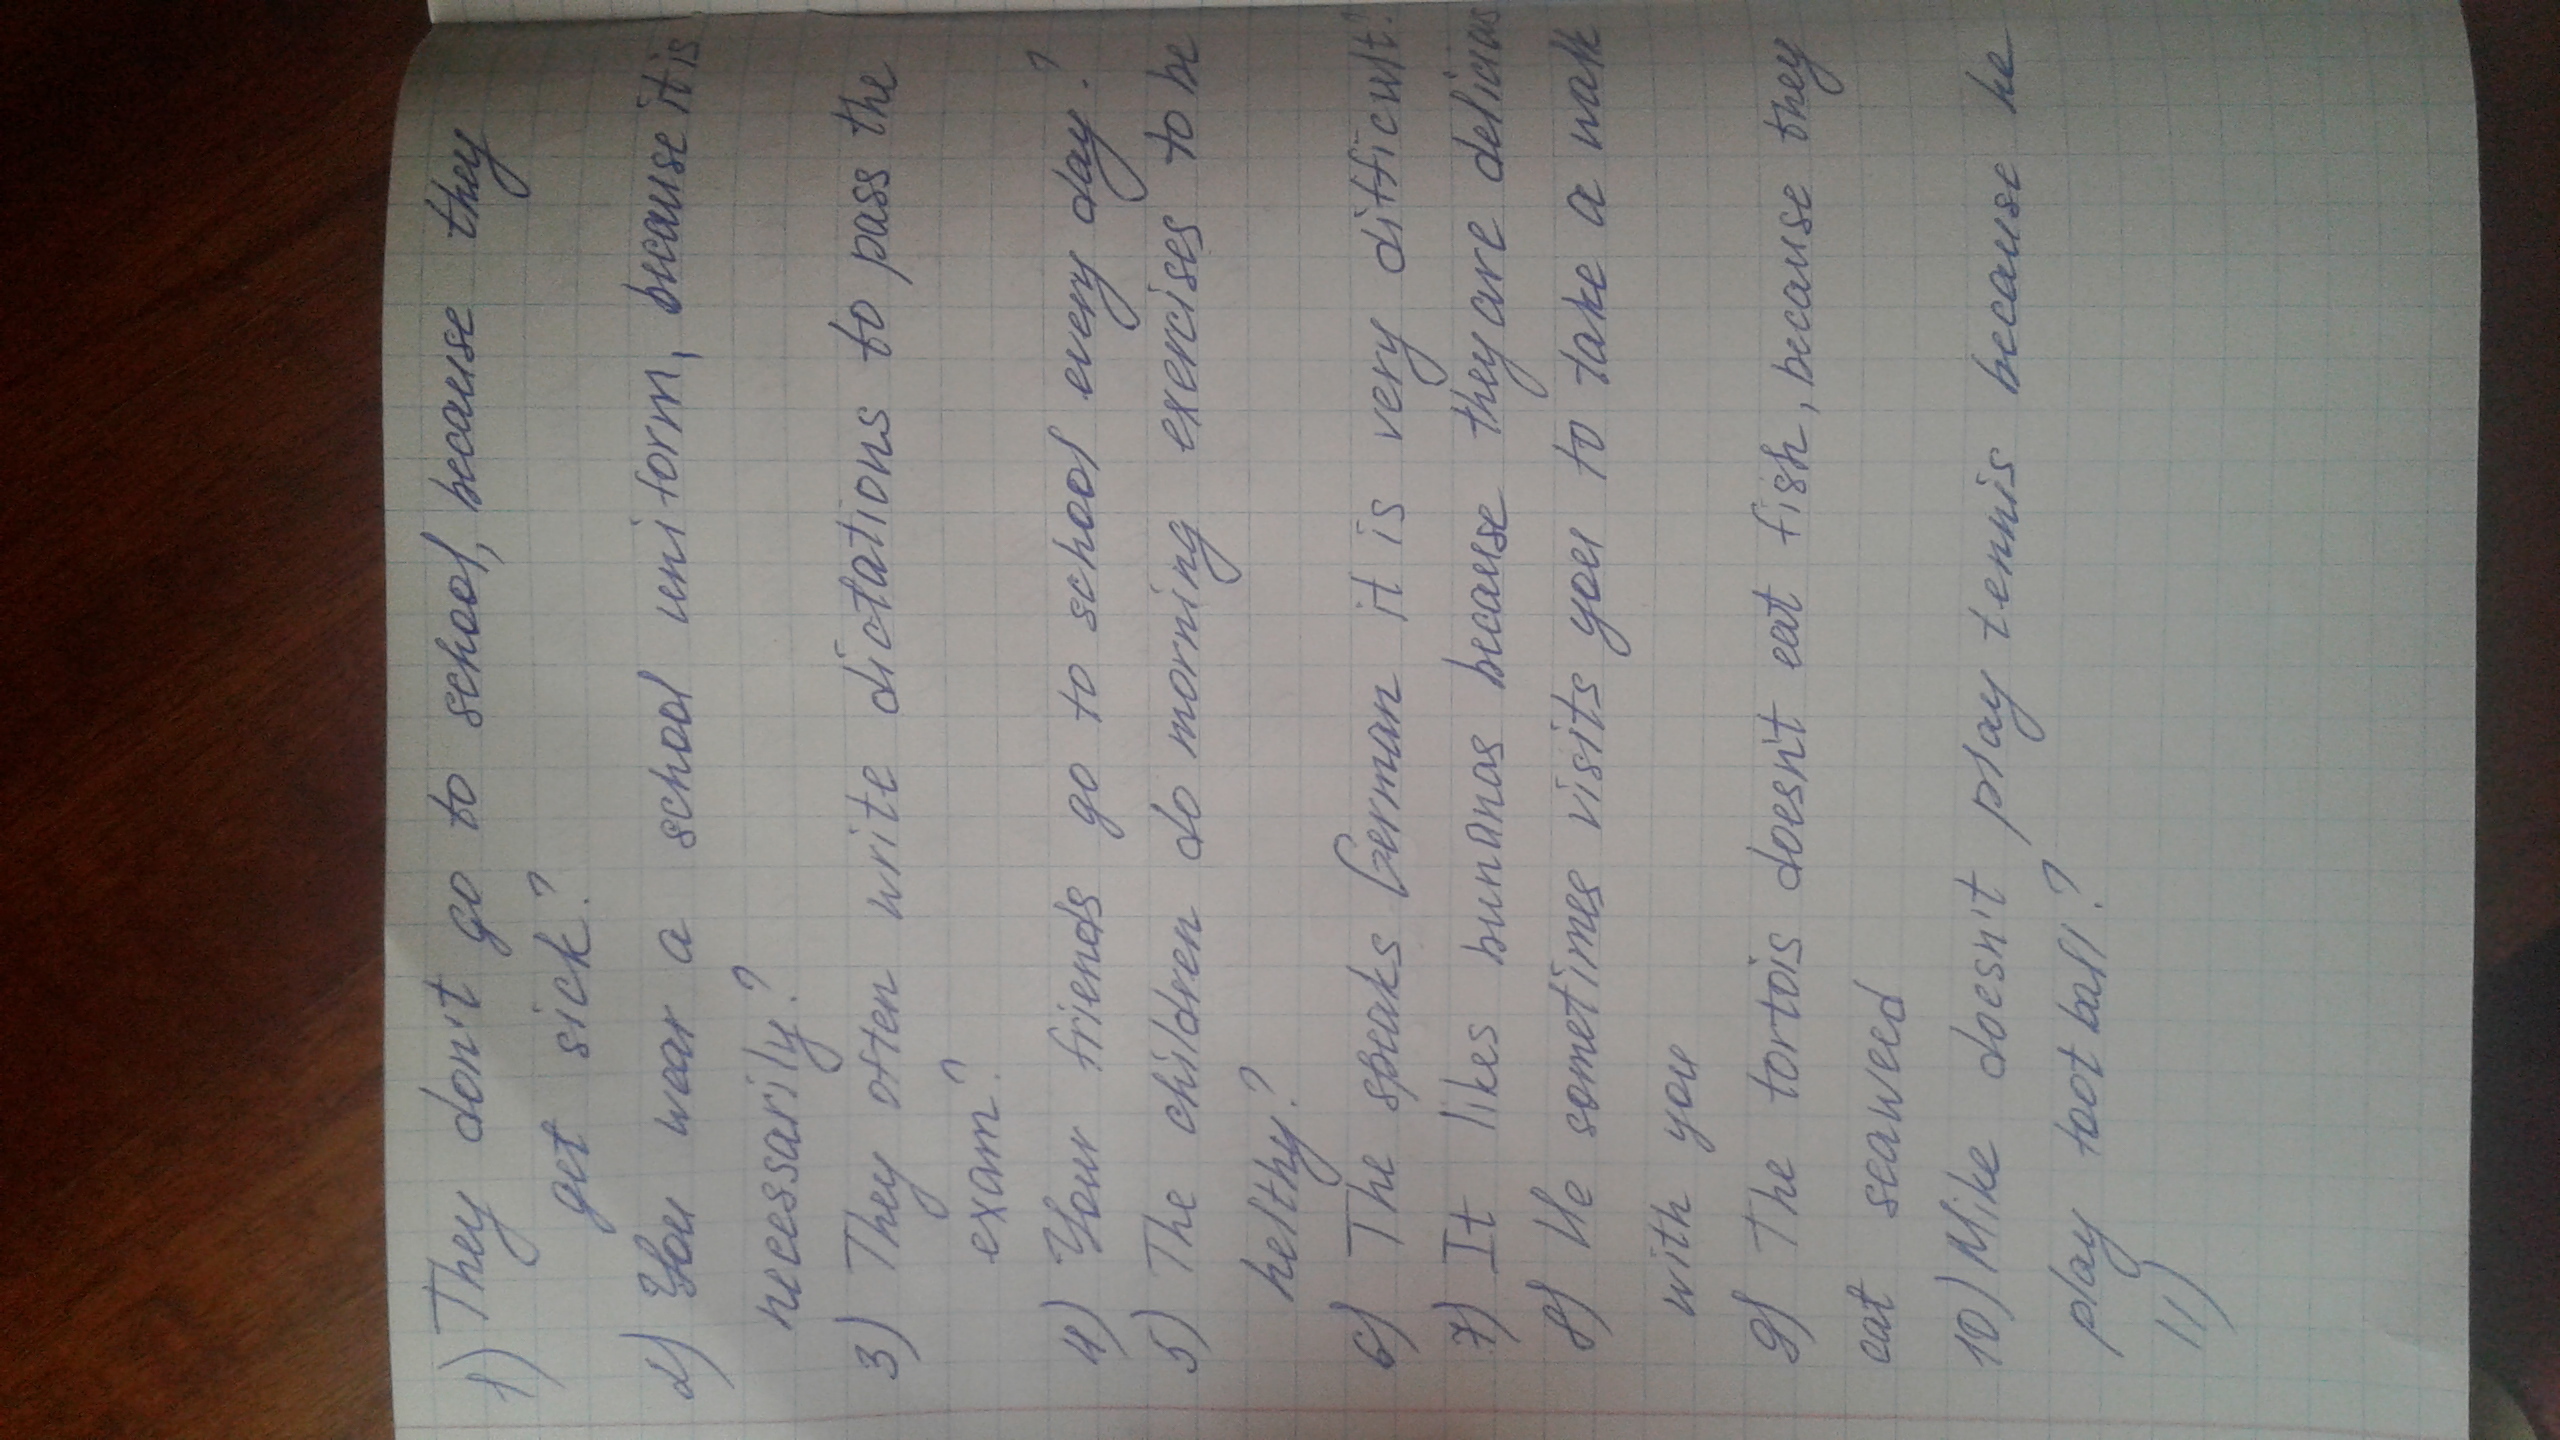 1) They don't go to school, because they
get sick?
2) You wear a school uniform, because it is
necessarily?
3) They often write dictations to pass the
exam?
4) Your friends go to school every day?
5) The children do morning exercises to be
helthy?
6) The speaks German it is very difficult?
7) It likes bunanas because they are delicias
8) He sometimes visits you to take a walk
with you
9) The tortois doesn't eat fish, because they
eat seaweed
10) Mike doesn't play tennis because he
play football?
11)